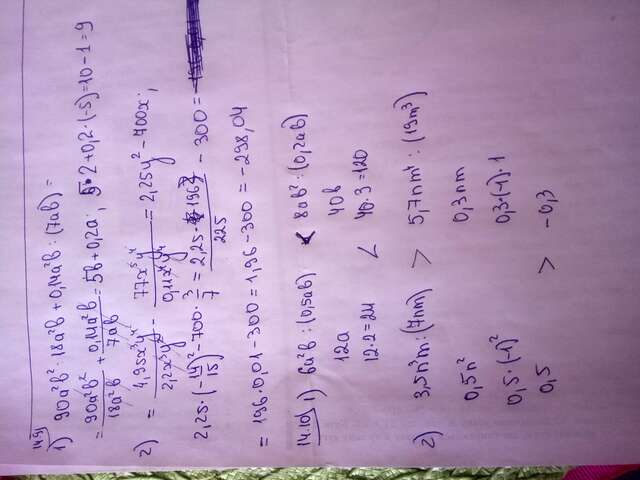 14.9
1) 90a²b² : 18a²b + 0,14a²b : (7ab) =
= 90a²b²/18a²b + 0,14a²b/7ab = 5b + 0,2a; 5·2+0,2·(-5)=10-1=9
2) = 4,95x³y⁴/2,2x³y² - 77x⁵y⁴/0,11x⁴y⁴ = 2,25y² - 700x;
2,25·(-14/15)² - 700·3/7 = 2,25·196/225 - 300 =
= 196·0,01-300 = 1,96-300 = -298,04
14.10 1) 6a²b : (0,5ab) < 8ab² : (0,2ab)
12a 40b
12·2=24 < 40·3=120
2) 3,5n³m : (7nm) > 5,7nm⁴ : (19m³)
0,5n² 0,3nm
0,5·(-1)² 0,3·(-1)·1
0,5 > -0,3